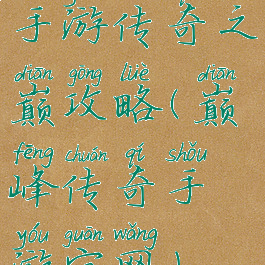 手游传奇之
diān gōng lüè diān
巅攻略(巅
fēng chuán qí shǒu
峰传奇手
yóu guān wǎng
游官网)